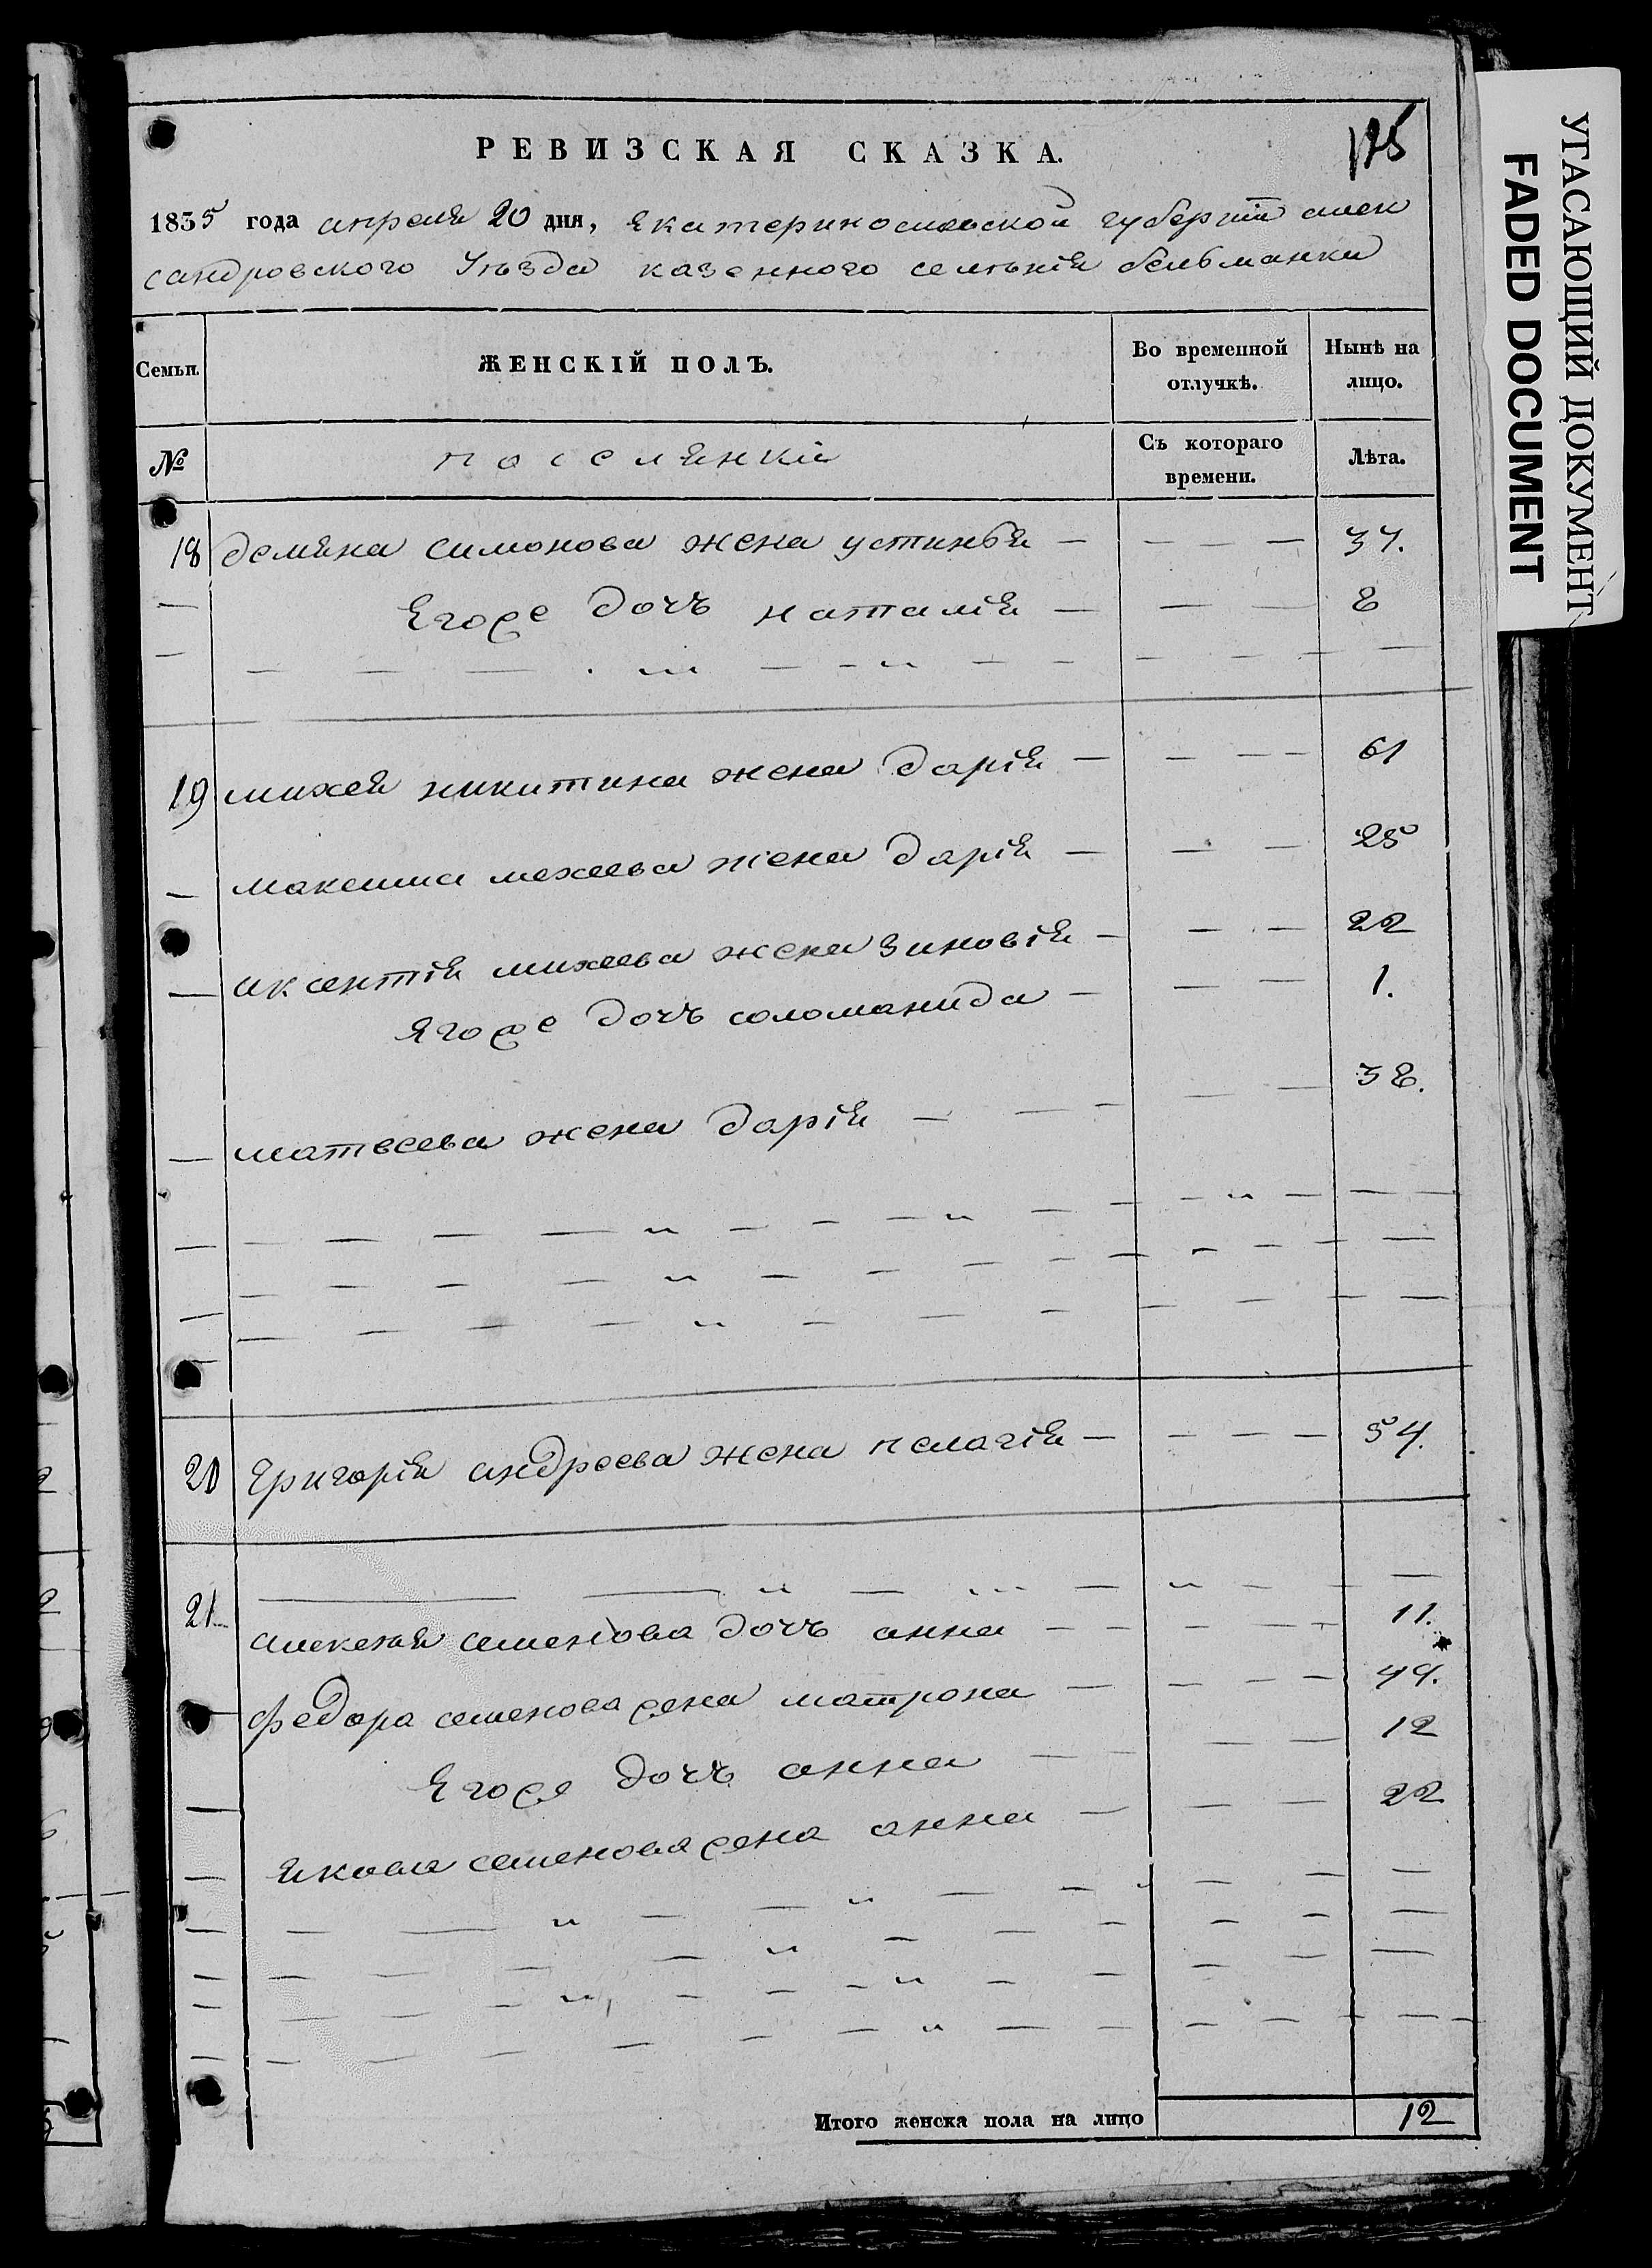 РЕВИЗСКАЯ СКАЗКА.
1835 года апреля 20 дня, Екатеринослаской губернии алек
сандровского Уѣзда казенного селѣнія бельманки
Семьи.
ЖЕНСКІЙ ПОЛЪ.
Во временной отлучкѣ.
Нынѣ на лицо.
№
поселянки
Съ котораго времени.
Лѣта.
18 демяна симонова жена устинья — — — — 37.
— Его же дочъ наталия — — — 8
19 михея никитина жена дарія — — — — 61
— максима мехеева жена дарія — — — 25
— аксентія михеева жена зиновія — — — 22
Яго же дочъ соломанида — — — 1.
— матвеева жена дарія — — — — — 38.
20 Григорія андреева жена пелагія — — — — 54.
21
алексѣя семенова дочъ анна — — — — — 11.
федора семенова жена матрона — — — — 44.
Его же дочъ анна — — — — 12
— якова семенова жена анна — — — 22
Итого женска пола на лицо 12
УГАСАЮЩИЙ ДОКУМЕНТ
FADED DOCUMENT